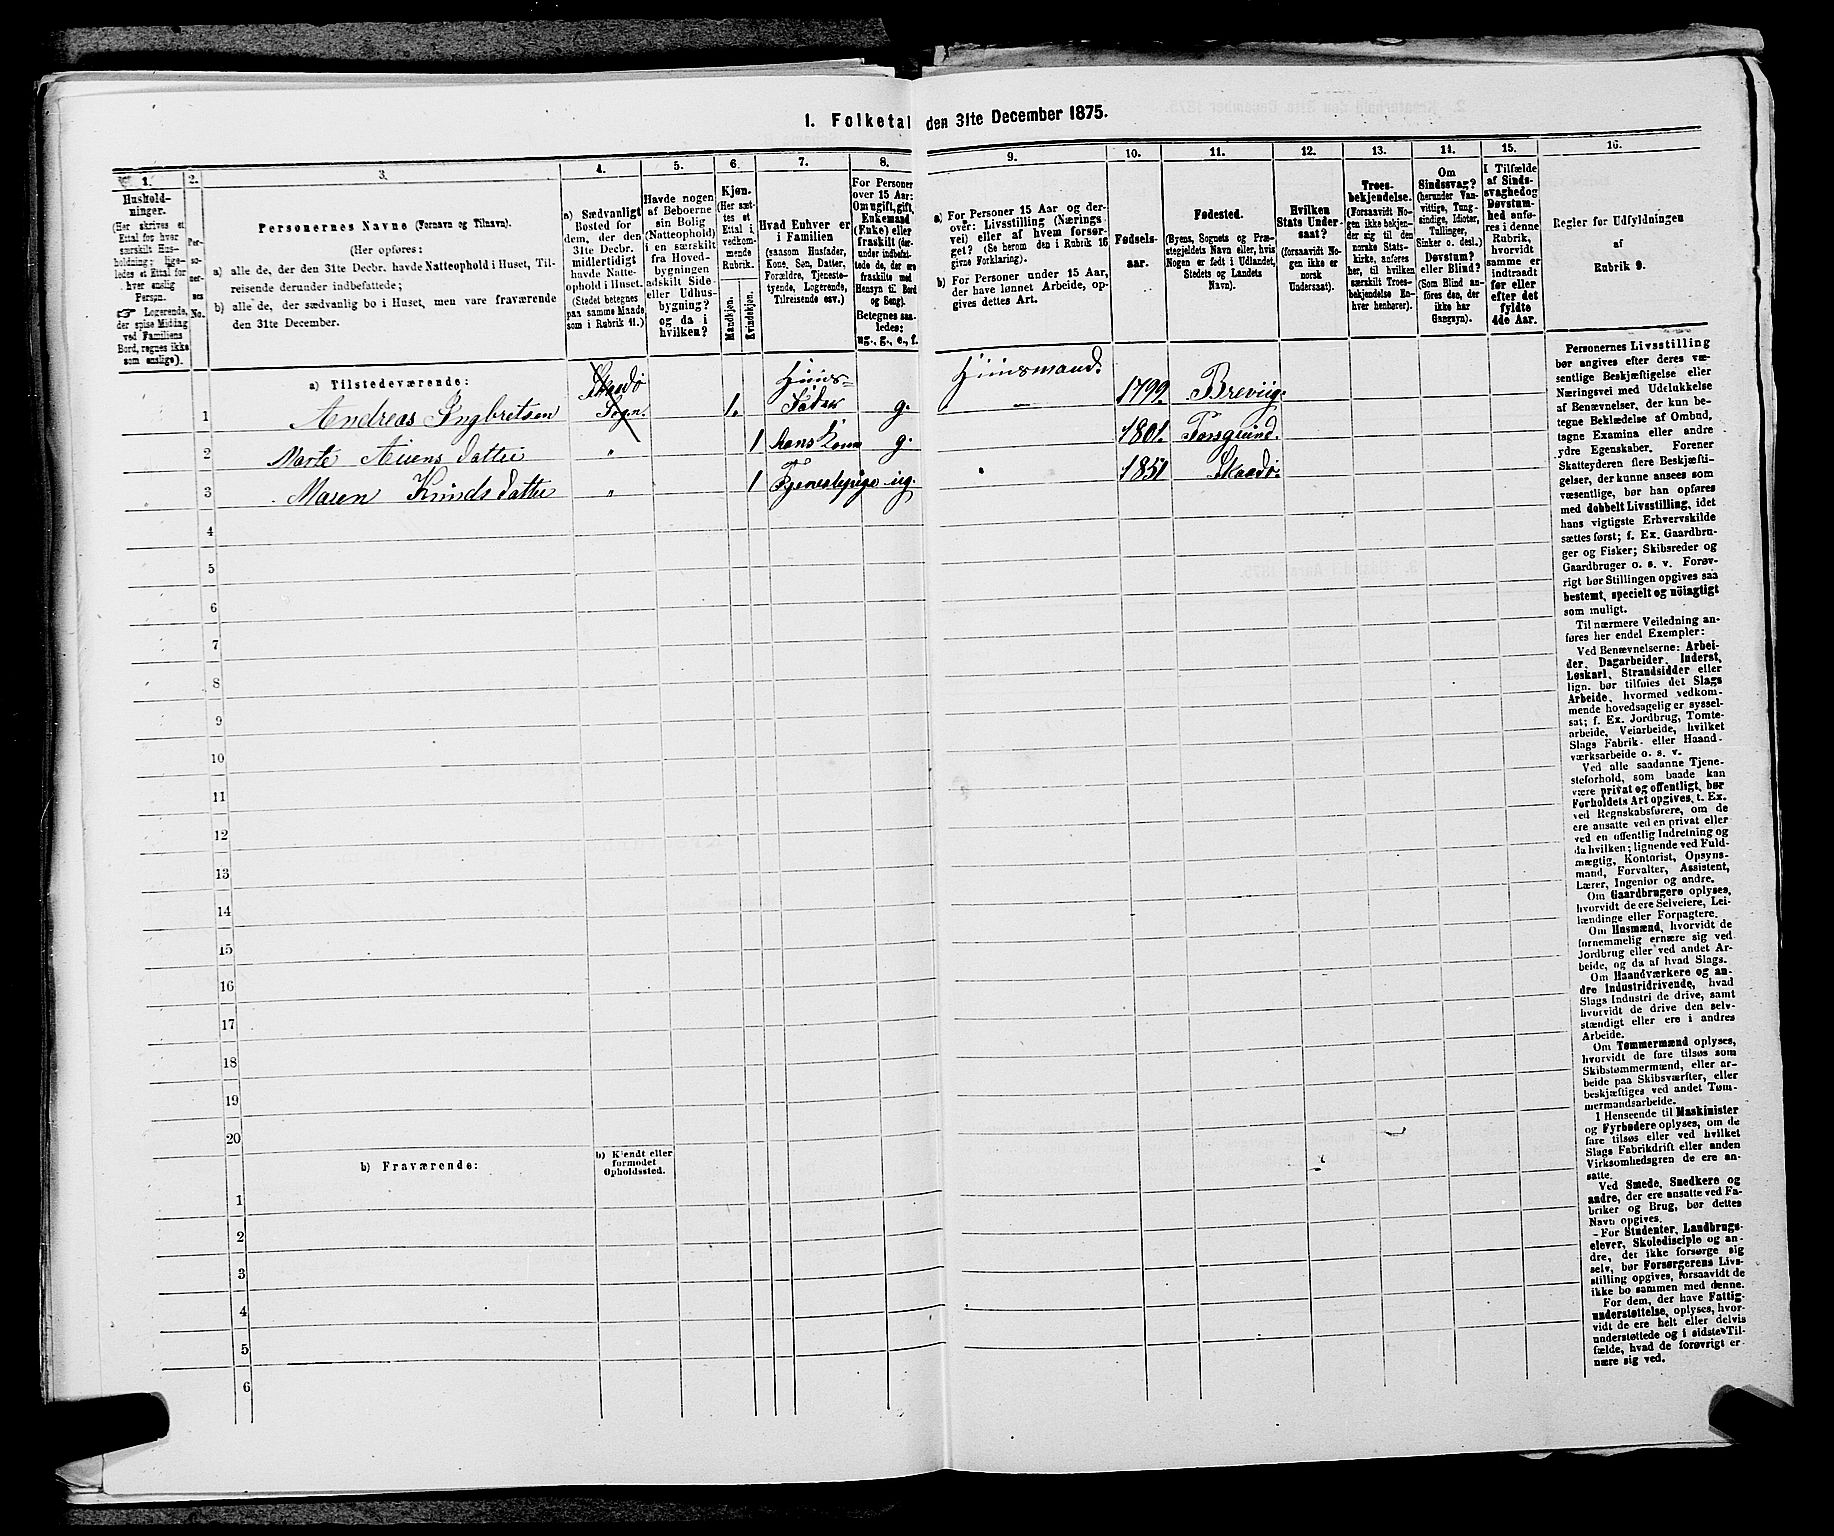 1. Folketal den 31te December 1875.
1.
Hushold-
ninger.
(Her skrives et
Ettal for hver
særskilt Hus-
holdning; lige-
ledes et Ettal for
hver enslig
Perspn.
☞ Logerende,
der spise Middag
ved Familiens
Bord, regnes ikke
som enslige).
2.
Per-
so-
ner-
nes
No.
3.
Personernes Navne (Fornavn og Tilnavn).
(Her opføres:
a) alle de, der den 31te Decbr. havde Natteophold i Huset, Til-
reisende derunder indbefattede;
b) alle de, der sædvanlig bo i Huset, men vare fraværende
den 31te December.
4.
a) Sædvanligt
Bosted for
dem, der den
31te Decbr.
midlertidigt
havde Natte-
ophold i Huset.
(Stedet betegnes
paa samme Maade
som i Rubrik 11.)
5.
Havde nogen
af Beboerne
sin Bolig
(Natteophold)
i en særskilt
fra Hoved-
bygningen
adskilt Side-
eller Udhus-
bygning?
og da i
hvilken?
6.
Kjøn.
(Her sæt-
tes et
Ettal i
vedkom-
mende
Rubrik.
Mandkjøn.
Kvindekjøn.
7.
Hvad Enhver er
i Familien
(saasom Husfader,
Kone, Søn, Datter,
Forældre, Tjeneste-
tyende, Logerende,
Tilreisende osv.)
8.
For Personer
over 15 Aar:
Om ugift, gift,
Enkemand
(Enke) eller
fraskilt (der-
under indbefat-
tede de, der ere
fraskilte med
Hensyn til Bord
og Seng).
Betegnes saa-
ledes:
ug., g., e., f.
9.
a) For Personer 15 Aar og der-
over: Livsstilling (Nærings-
vei) eller af hvem forsør-
get? (Se herom den i Rubrik 16
givne Forklaring).
b) For Personer under 15 Aar,
der have lønnet Arbeide, op-
gives dettes Art.
10.
Fødsels-
aar.
11.
Fødested.
(Byens, Sognets og Præ-
stegjeldets Navn eller, hvis
Nogen er født i Udlandet,
Stedets og Landets
Navn).
12.
Hvilken
Stats Under-
saat?
(forsaavidt No-
gen ikke er
norsk
Undersaat).
13.
Troes-
bekjendelse.
(Forsaavidt No-
gen ikke bekjen-
der sig til den
norske Stats-
kirke, anføres
her, til hvilken
særskilt Troes-
bekjendelse En-
hver henhører).
14.
Om
Sindssvag?
(herunder Van-
vittige, Tung-
sindige, Idioter,
Tullinger,
Sinker o. desl.)
Døvstum?
eller Blind?
(Som Blind an-
føres den, der
ikke har
Gangsyn).
15.
I Tilfælde
af Sinds-
svaghed og
Døvstum-
hed anfø-
res i denne
Rubrik,
hvorvidt
samme er
indtraadt
før eller
efter det
fyldte
4de Aar.
16.
Regler for Udfyldningen
af
Rubrik 9.
a) Tilstedeværende:
1 Andreas Ingbretsen Skaadø Sogn. 1. Huus- Fader g. Huusmand. 1799 Brevig.
2 Marte datter " 1 hans Kone g. 1801. Porsgrund.
3 Maren Knudsdatter " 1 Tjenestepige ug. " 1851 Skaadø.
4
5
6
7
8
9
10
11
12
13
14
15
16
17
18
19
20
b) Fraværende:
b) Kjendt eller
formodet
Opholdssted.
1
2
3
4
5
6
Personernes Livsstilling
bør angives efter deres væ-
sentlige Beskjæftigelse eller
Næringsvei med Udelukkelse
af Benævnelser, der kun be-
tegne Beklædelse af Ombud,
tagne Examina eller andre
ydre Egenskaber. Forener
Skatteyderen flere Beskjæfti-
gelser, der kunne ansees som
væsentlige, bør han opføres
med dobbelt Livsstilling, idet
hans vigtigste Erhvervskilde
sættes først; f. Ex. Gaardbru-
ger og Fisker; Skibsreder og
Gaardbruger o. s. v. Forøv-
rigt bør Stillingen opgives saa
bestemt, specielt og nöiagtigt
som muligt.
Til nærmere Veiledning an-
føres her endel Exempler:
Ved Benævnelserne: Arbei-
der, Dagarbeider, Inderst,
Løskarl, Strandsidder eller
lign. bør tilføies det Slags
Arbeide, hvormed vedkom-
mende hovedsagelig er syssel-
sat; f. Ex. Jordbrug, Tomte-
arbeide, Veiarbeide, hvilket
Slags Fabrik- eller Haand-
værksarbeide o. s. v.
Ved alle saadanne Tjene-
steforhold, som baade kan
være privat og offentligt, bør
Forholdets Art opgives, t. Ex.
ved Regnskabsførere, om de
ere ansatte ved en privat eller
ved en offentlig Indretning og
da hvilken; lignende ved Fuld-
mægtig, Kontorist, Opsyns-
mand, Forvalter, Assistent,
Lærer, Ingeniør og andre.
Om Gaardbrugere oplyses,
hvorvidt de ere Selveiere, Lei-
lændinge eller Forpagtere.
Om Husmænd, hvorvidt de
fornemmelig ernære sig ved
Jordbrug eller ved andet Ar-
beide, og da af hvad Slags.
Om Haandværkere og an-
dre Industridrivende, hvad
Slags Industri de drive, samt
hvorvidt de drive den selv-
stændigt eller ere i andres
Arbeide.
Om Tømmermænd oplyses,
hvorvidt de fare tilsøs som
Skibstømmermænd, eller ar-
beide paa Skibsværfter, eller
beskjæftiges ved andet Tøm-
mermandsarbeide.
I Henseende til Maskinister
og Fyrbødere oplyses, om de
fare tilsøs eller ved hvilket
Slags Fabrikdrift eller anden
Virksomhedsgren de ere an-
satte.
Ved Smede, Snedkere og
andre, der ere ansatte ved Fa-
briker og Brug, bør dettes
Navn opgives.
For Studenter, Landbrugs-
elever, Skoledisciple og an-
dre, der ikke forsørge sig
selv, bør Forsørgerens Livs-
stilling opgives, forsaavidt de
ikke bo sammen med denne.
For dem, der have Fattig-
understøttelse, oplyses, hvor-
vidt de ere helt eller delvis
understøttede og i sidste Til-
fælde, hvad de forøvrigt er-
nære sig ved.